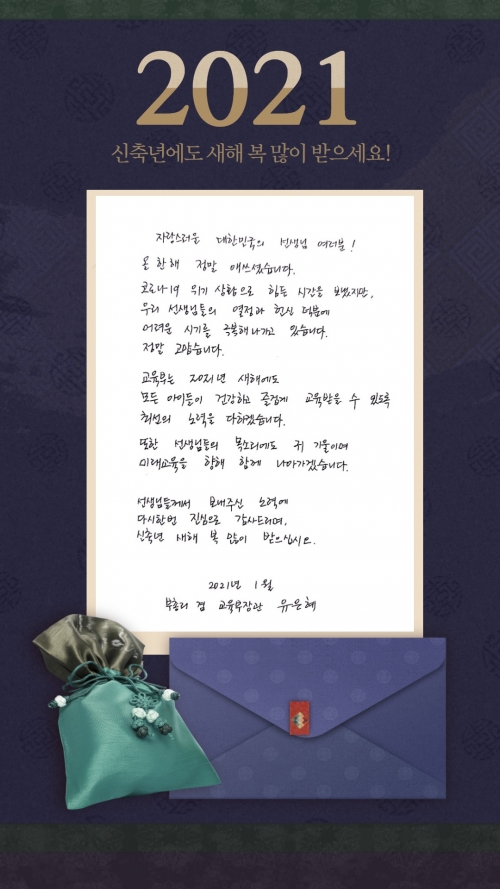 2021
신축년에도 새해 복 많이 받으세요!
자랑스러운 대한민국의 선생님 여러분!
올 한해 정말 애쓰셨습니다.
코로나19 위기 상황으로 힘든 시간을 보냈지만,
우리 선생님들의 열정과 헌신 덕분에
어려운 시기를 극복해나가고 있습니다.
정말 고맙습니다.
교육부는 2021년 새해에도
모든 아이들이 건강하고 즐겁게 교육받을 수 있도록
최선의 노력을 다하겠습니다.
또한 선생님들의 목소리에도 귀 기울이며
미래교육을 향해 함께 나아가겠습니다.
선생님들께서 보내주신 노력에
다시한번 진심으로 감사드리며,
신축년 새해 복 많이 받으십시오.
2021년 1월
부총리 겸 교육부장관 유은혜